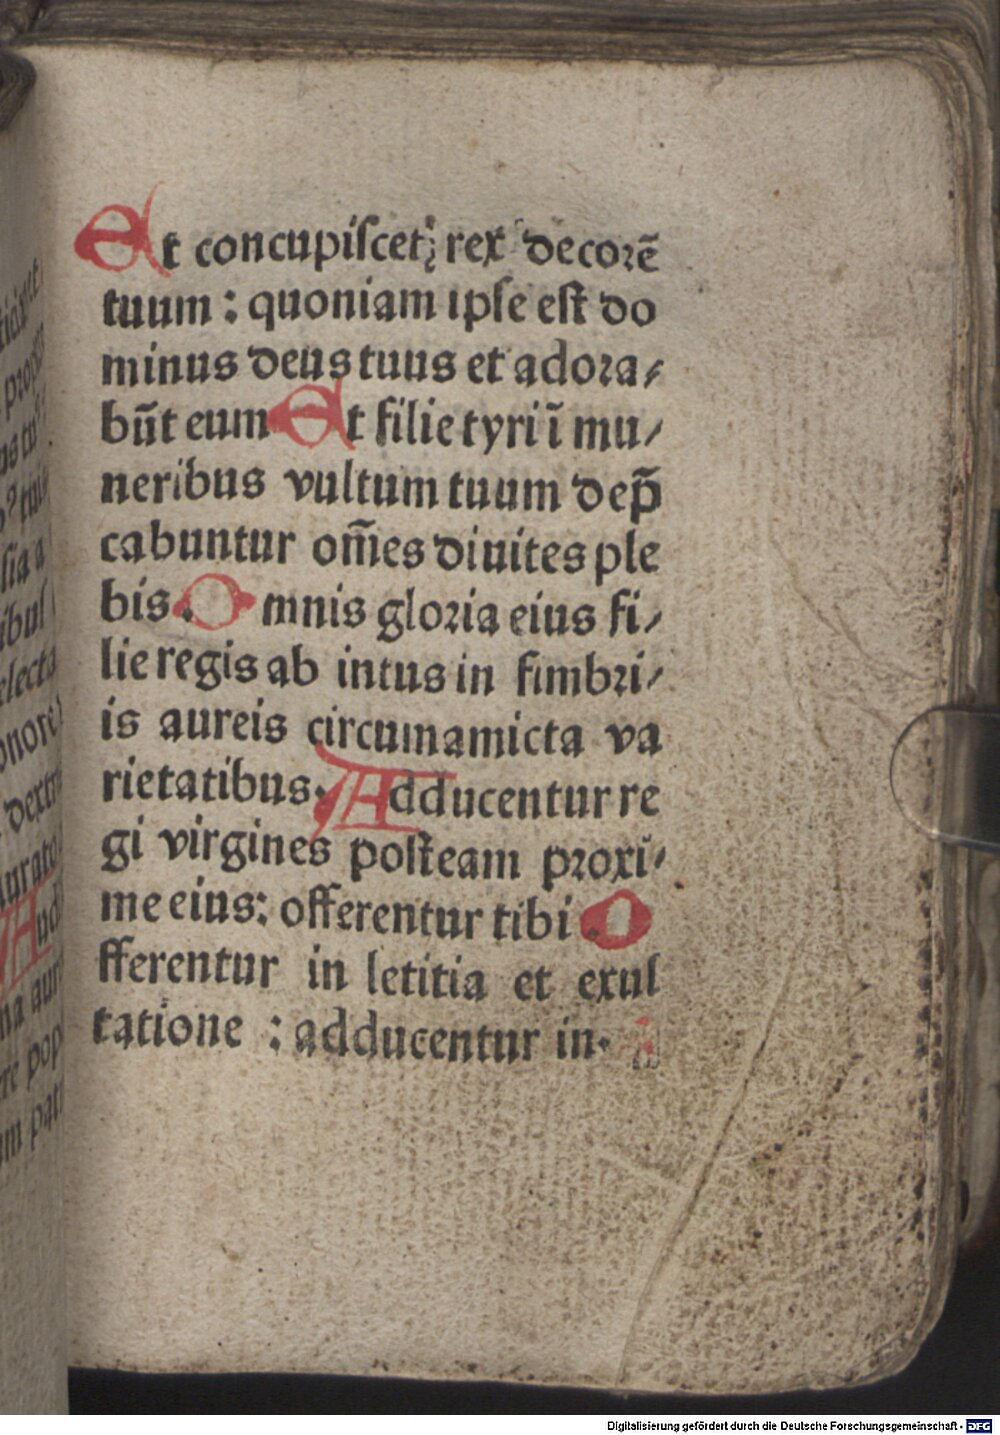 Et concupiſcetꝫ rex decorē
tuum : quoniam ipſe eſt do
minus deus tuus et adora⸗
būt eum Et filie tyri ī mu⸗
neribus vultum tuum dep̄
cabuntur om̄es diuites ple
bis. Omnis gloria eius fi⸗
lie regis ab intus in fimbri⸗
is aureis circumamicta va
rietatibus. Adducentur re
gi virgines poſteam proxi⸗
me eius: offerentur tibi. O
fferentur in letitia et exul
tatione : adducentur in.
Digitalisierung gefördert durch die Deutsche Forschungsgemeinschaft - DFG